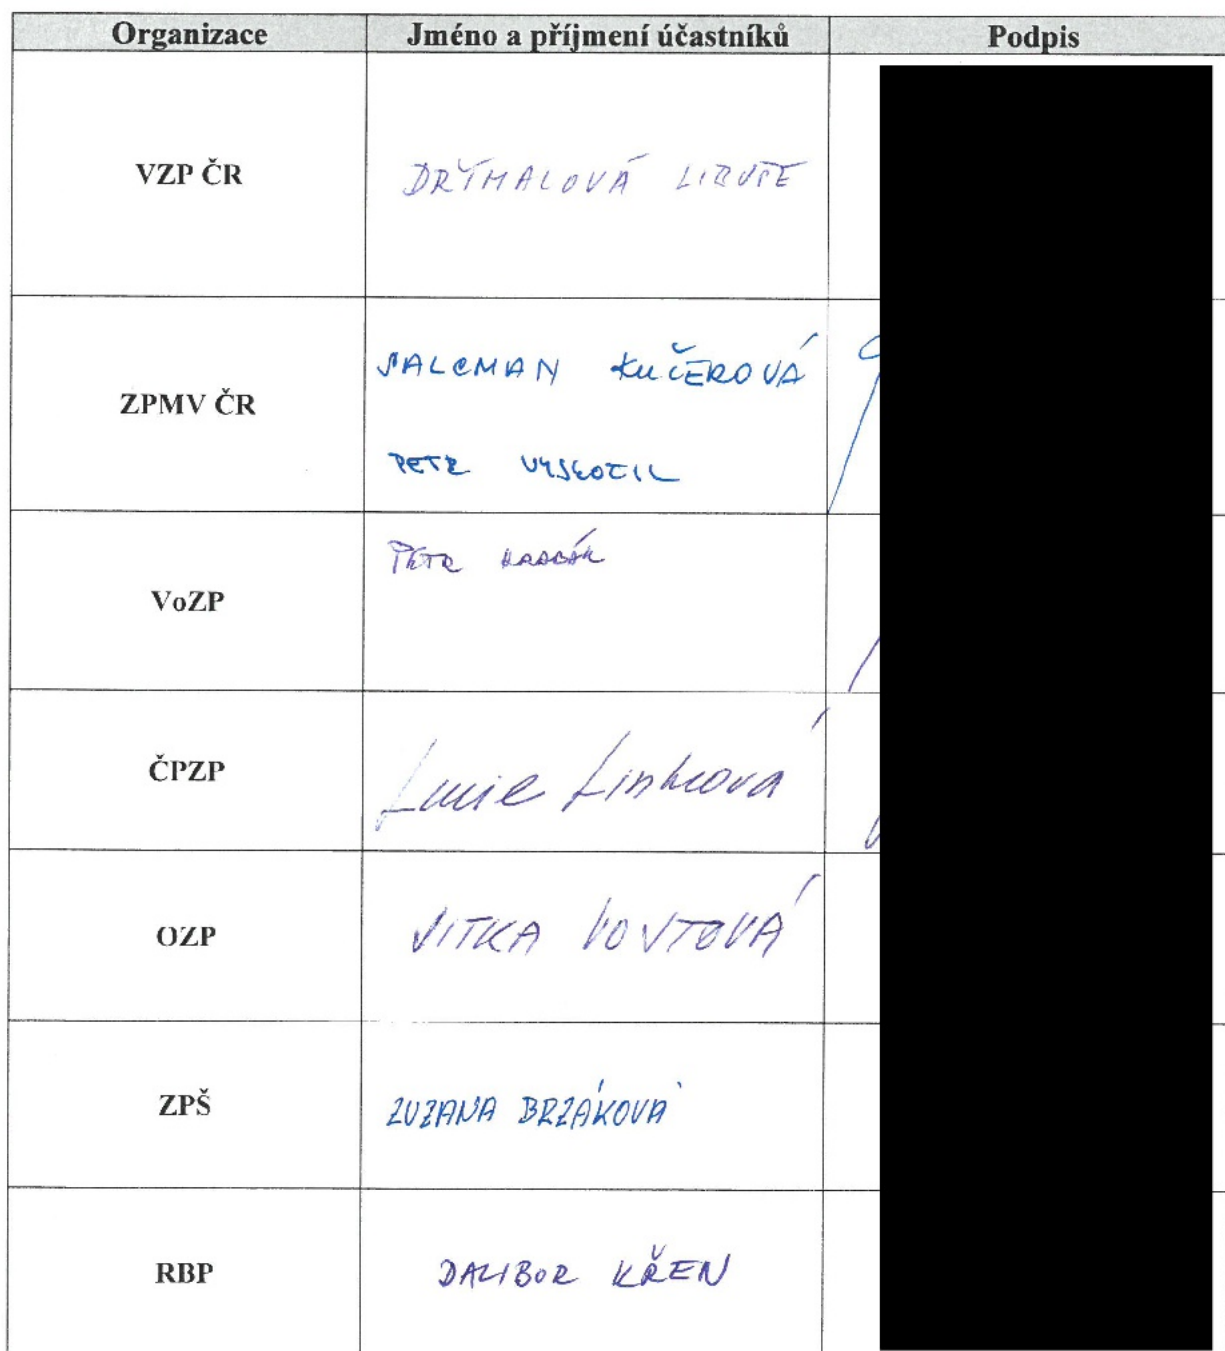 Organizace Jméno a příjmení účastníků Podpis
VZP ČR DRÝMALOVÁ LIBUŠE
ZPMV ČR
SALCMAN KUČEROVÁ
PETR VYSKOČIL
VoZP PETR HRABÁK
ČPZP Lucie Linhová
OZP JITKA VOJTOVÁ
ZPŠ ZUZANA BRZÁKOVÁ
RBP DALIBOR KŘEN